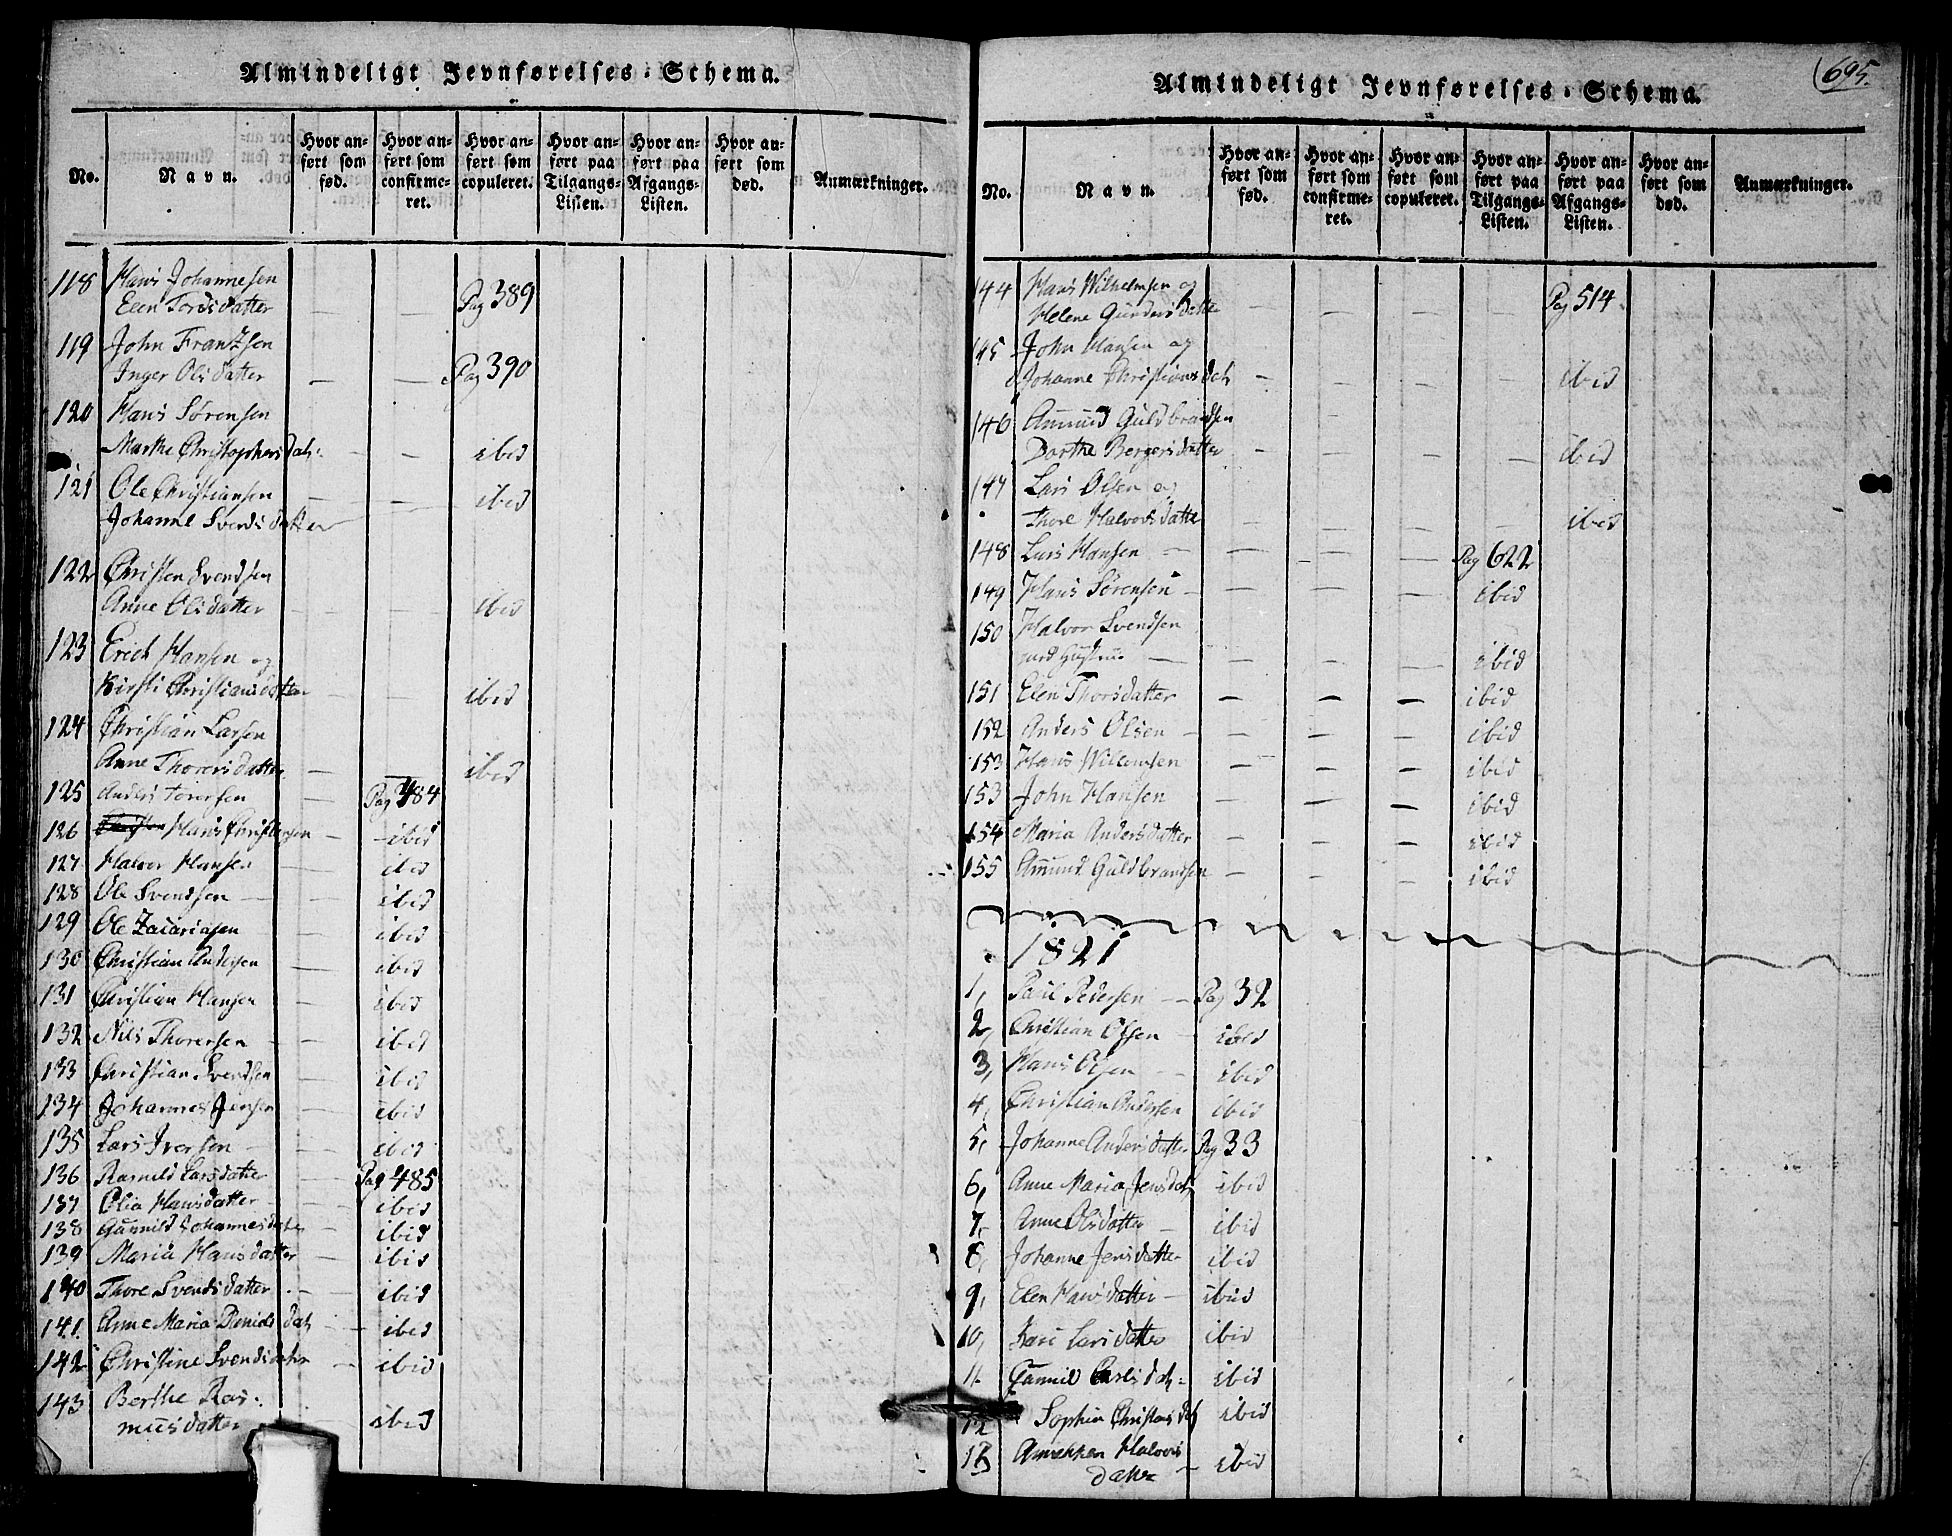 Almindeligt Jevnførelses-Schema.
No. Navn. Hvor anført som fød. Hvor anført som confirmeret. Hvor anført som copuleret. Hvor anført paa Tilgangs-Listen. Hvor anført paa Afgangs-Listen. Hvor anført som død. Anmærkninger.
118 Hans Johannesen
Elen Tordsdatter — — Pag 389
119 John Frantzsen
Inger Olsdatter — — Pag 390
120 Hans Sørensen
Marthe Christophersdatr: — — ibid
121 Ole Christiansen — — ibid
Johanne Svendsdatter
122 Christen Svendsen
Anne Olsdatter — — ibid
123 Erich Hansen og
Kirsti Christiansdatter — — ibid
124 Christian Larsen
Anne Thorersdatter — — ibid
125 Anders Torersen — Pag 484
126 Hans Christensen — ibid
127 Halvor Hansen — ibid
128 Ole Svendsen — ibid
129 Ole Zacariasen — ibid
130 Christian Andersen — ibid
131 Christian Hansen — ibid
132 Nils Thorersen — ibid
133 Christian Svendsen — ibid
134 Johannes Jensen — ibid
135 Lars Iversen — ibid
136 Ragnild Larsdatter — Pag 485
137 Olia Hansdatter — ibid
138 Gunnild Johannesdatr — ibid
139 Maria Hansdatter — ibid
140 Thore Svendsdatter — ibid
141 Anne Maria Daniels dat — ibid
142 Christine Svendsdatter — ibid
143 Berthe Ras-
musdatter — ibid
695.
Almindeligt Jevnførelses-Schema.
No. Navn. Hvor anført som fød. Hvor anført som confirmeret. Hvor anført som copuleret. Hvor anført paa Tilgangs-Listen. Hvor anført paa Afgangs-Listen. Hvor anført som død. Anmærkninger.
144 Hans Wilhelmsen og
Helene Gundersdatter — — — — Pag 514
145 John Hansen og
Johanne Christians dat — — — — ibid
146 Amund Guldbrandsen
Dorthe Bergersdatter — — — — ibid
147 Lars Olsen og
Thore Halvorsdatter — — — — ibid
148 Lars Hansen — — — Pag 622
149 Hans Sørensen — — — ibid
150 Halvor Svendsen
med Hustrue — — — ibid
151 Elen Thorsdatter — — — ibid
152 Anders Olsen — — — ibid
153 Hans Wilemsen — — — ibid
153 John Hansen — — — ibid
154 Maria Andersdatter — — — ibid
155 Amund Guldbrandsen — — — ibid
1821
1, Paul Pedersen — Pag 32
2, Christian Olsen — ibid
3, Hans Olsen — ibid
4, Christian Andersen ibid
5, Johanne Andersdatter Pag 33
6, Anne Maria Jensdat ibid
7, Anne Olsdatter — ibid
8, Johanne Jensdatter ibid
9, Elen Hansdatter — ibid
10, Kari Larsdatter ibid
11 Gunnil Carlsdatr ibid
12 Sophia Christens dat ibid
13 Annekken Halvors
datter — ibid